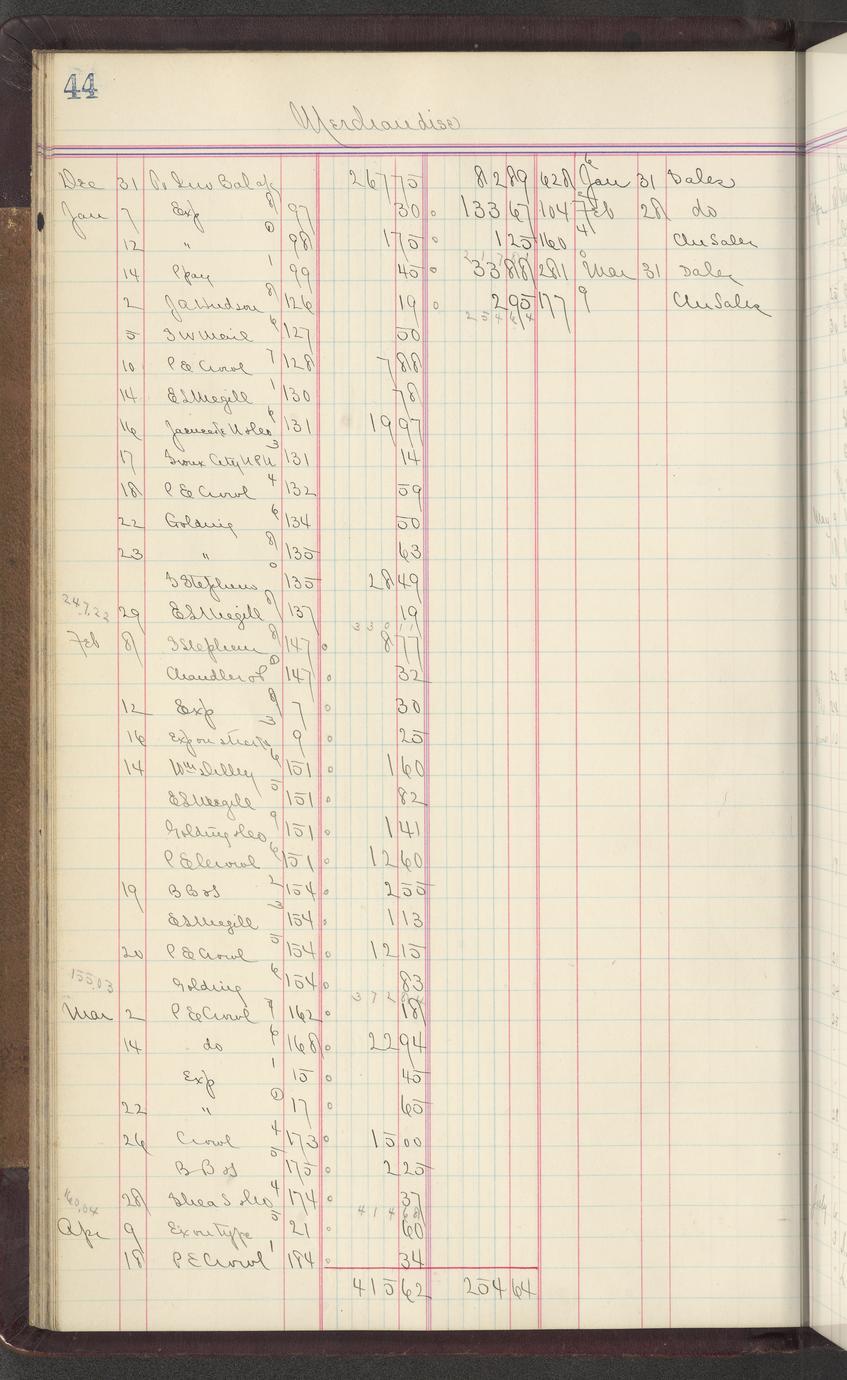 44
Merchandise
Dec 31 Bal 267 75 82 89 628 6 Jan 31 Sales
Jan 7 Exp 8 97 30 133 67 104 7 Feb 28 do
12 " 0 98 1 75 1 25 160 4 Sales
14 1 99 45 33 88 281 0 Mar 31 Sales
2 J A Hudson 8 126 19 2 95 177 9 Sales
254 64
5 6 127 50
10 P E Crowl 7 128 7 88
14 E S Megill 1 130 78
16 6 131 19 97
17 Sioux City 3 131 14
18 P E Crowl 4 132 59
22 Golding 6 134 50
23 " 8 135 63
Stephens 0 135 28 49
247.23 29 E S Megill 8 137 19
330 11
Feb 8 Stephens 8 147 8 77
Chandler 0 147 32
12 Exp 8 7 30
16 Exp on 3 9 25
14 Wm Dilley 6 151 1 60
E S Megill 5 151 82
Golding & Co 9 151 1 41
P E Crowl 6 151 12 60
19 B B & S 2 154 2 55
E S Megill 3 154 1 13
20 P E Crowl 5 154 12 15
155.03 Golding 6 154 83
Mar 2 P E Crowl 9 162 18
14 do 6 168 22 94
Exp 1 15 45
22 " 0 17 65
26 Crowl 4 173 15 00
B B & S 5 175 2 25
160.04 28 Shea S & Co 4 174 37
414 68
Apr 9 Ex on type 5 21 60
18 P E Crowl 1 184 34
415 62 254 64